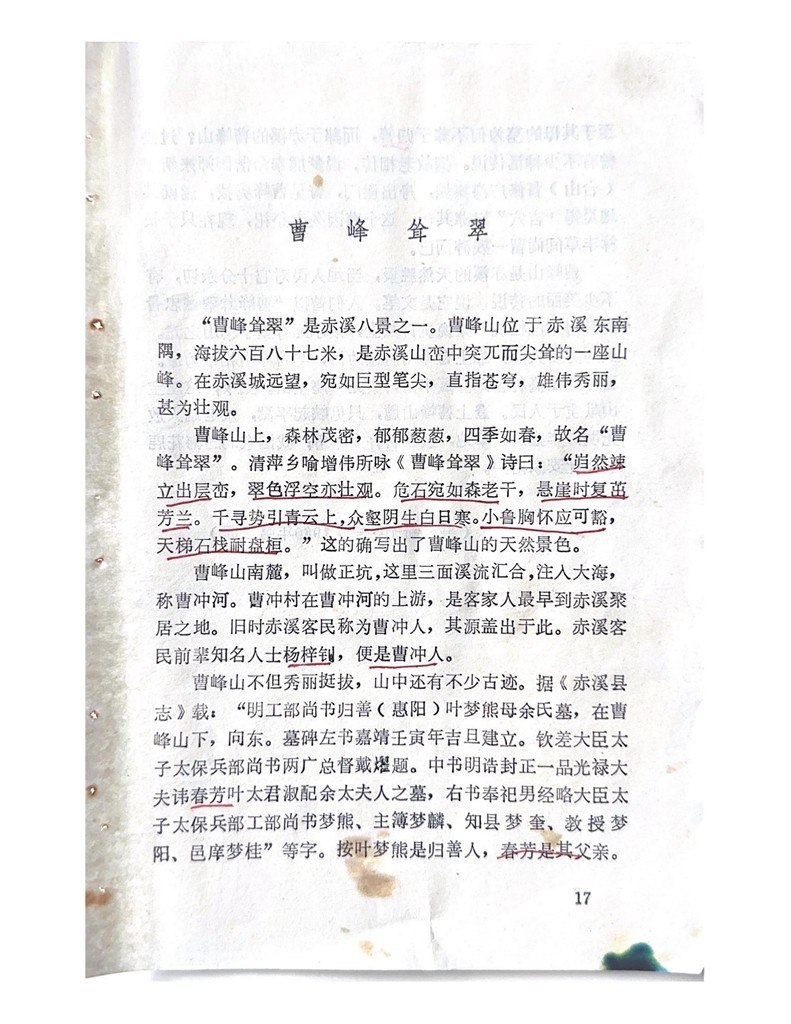 曹峰耸翠
“曹峰耸翠”是赤溪八景之一。曹峰山位于赤溪东南
隅，海拔六百八十七米，是赤溪山峦中突兀而尖耸的一座山
峰。在赤溪城远望，宛如巨型笔尖，直指苍穹，雄伟秀丽，
甚为壮观。
曹峰山上，森林茂密，郁郁葱葱，四季如春，故名“曹
峰耸翠”。清萍乡喻增伟所咏《曹峰耸翠》诗曰：“岿然竦
立出层峦，翠色浮空亦壮观。危石宛如森老干，悬崖时复茁
芳兰。千寻势引青云上，众壑阴生白日寒。小鲁胸怀应可豁，
天梯石栈耐盘桓。”这的确写出了曹峰山的天然景色。
曹峰山南麓，叫做正坑，这里三面溪流汇合，注入大海，
称曹冲河。曹冲村在曹冲河的上游，是客家人最早到赤溪聚
居之地。旧时赤溪客民称为曹冲人，其源盖出于此。赤溪客
民前辈知名人士杨梓钊，便是曹冲人。
曹峰山不但秀丽挺拔，山中还有不少古迹。据《赤溪县
志》载：“明工部尚书归善（惠阳）叶梦熊母余氏墓，在曹
峰山下，向东。墓碑左书嘉靖壬寅年吉旦建立。钦差大臣太
子太保兵部尚书两广总督戴燿题。中书明诰封正一品光禄大
夫讳春芳叶太君淑配余太夫人之墓，右书奉祀男经略大臣太
子太保兵部工部尚书梦熊、主簿梦麟、知县梦奎、教授梦
阳、邑庠梦桂”等字。按叶梦熊是归善人，春芳是其父亲。
17